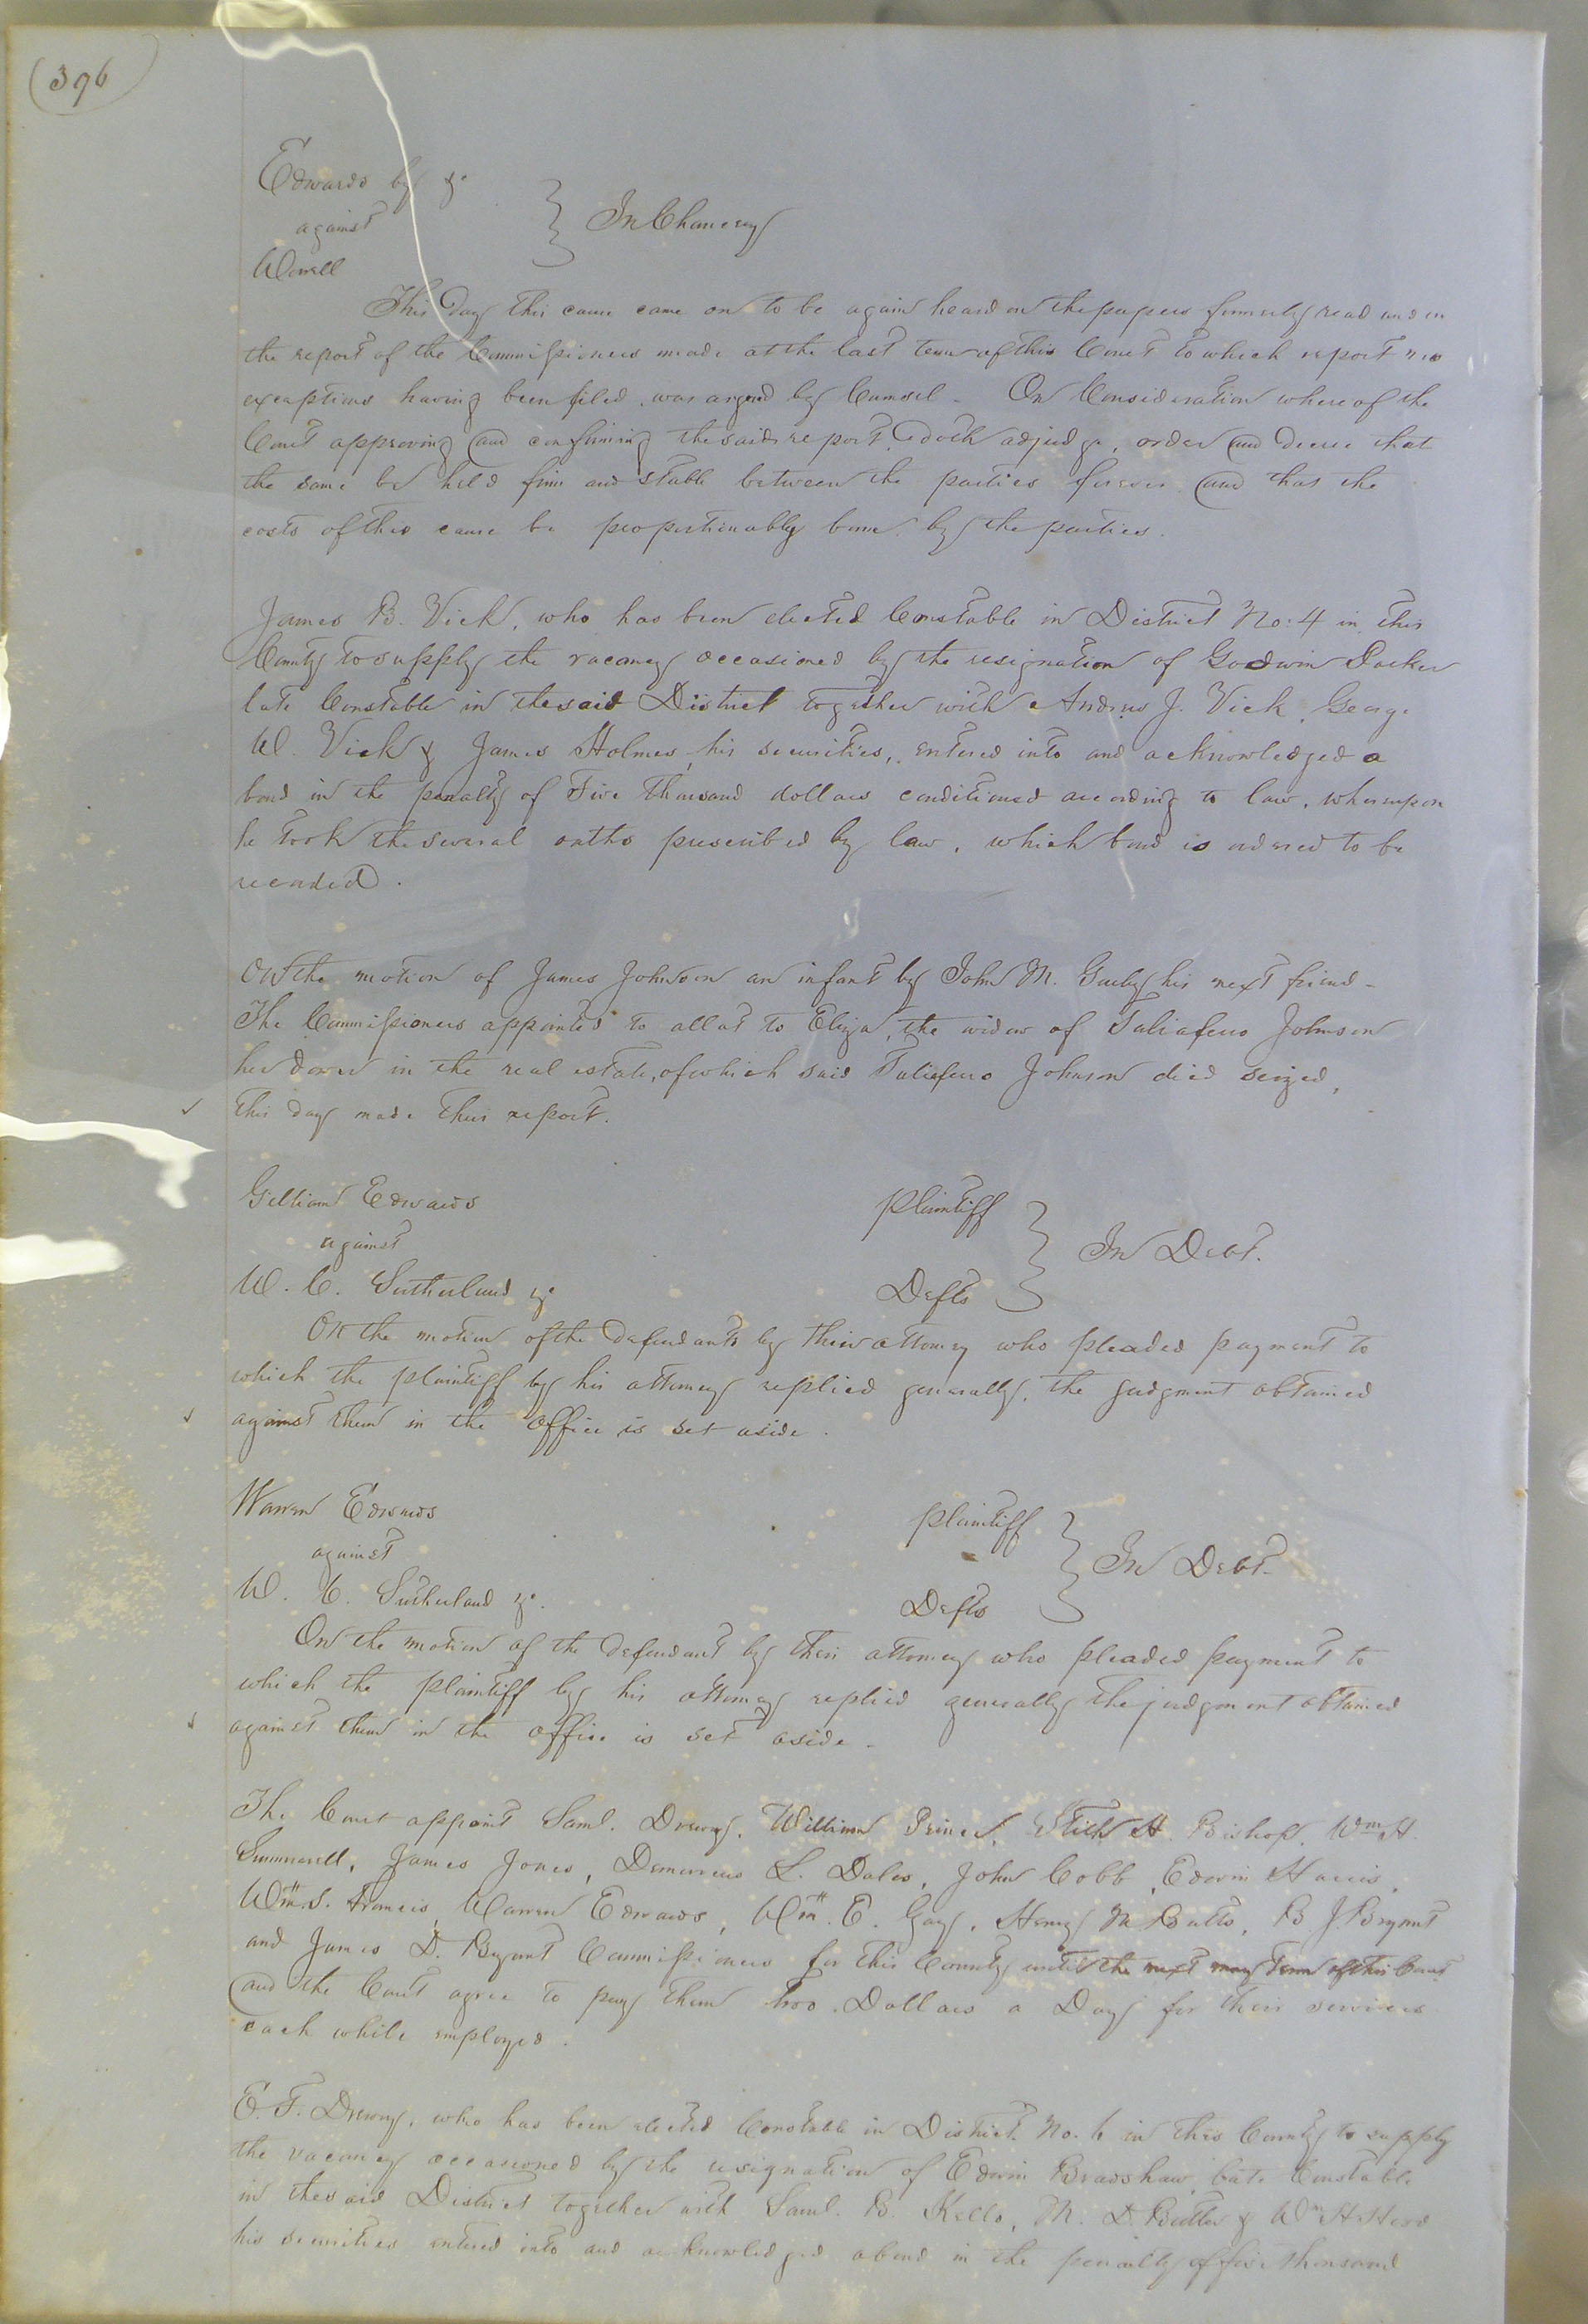 (396)
Edwards by &c
against
Worrell
} In Chancery
This day this cause came on to be again heard on the papers formerly read and on
the report of the Commissioners made at the last term of this Court to which report no
exceptions having been filed, was argued by Counsel - On Consideration whereof the
Court approving and confirming the said report, doth adjudge, order and decree that
the same be held firm and stable between the parties forever and that the
costs of this cause be proportionably borne by the parties.
James B. Vick, who has been elected Constable in District No: 4 in this
County to supply the vacancy occasioned by the resignation of Godwin Parker
late Constable in the said District together with Andrew J. Vick, George
W. Vick & James Holmes, his securities, entered into and acknowledged a
bond in the penalty of Five thousand dollars conditioned according to law, whereupon
he took the several oaths prescribed by law, which bond is ordered to be
recorded.
On the motion of James Johnson an infant by John M. Gurley his next friend -
The Commissioners appointed to allot to Eliza, the widow of Taliaferro Johnson
her dower in the real estate, of which said Taliaferro Johnson died seized,
✓ this day made their report.
Gilliam Edwards plaintiff
against } In Debt.
W. C. Sutherland &c Defts
On the motion of the defendants by their attorney who pleaded payment to
which the plaintiff by his attorney replied generally, the judgment obtained
✓ against them in the office is set aside.
Warren Edwards plaintiff
against } In Debt-
W. C. Sutherland &c. Defts
On the motion of the defendant by their attorney who pleaded payment to
which the plaintiff by his attorney replied generally the judgment obtained
✓ against them in the office is set aside -
The Court appoint Saml. Drewry, William Prince, Stith H. Bishop, Wm H.
Summerell, James Jones, L. Dales, John Cobb, Edwin Harris,
Wm. S. Francis, Warren Edwards, Wm. E. Gay, Henry M Butts, B J. Bryant
and James D. Bryant Commissioners for this County until the next may term of this Court
and the Court agree to pay them two Dollars a Day for their services
each while employed.
E. T. Drewry, who has been elected Constable in District No. 6 in this County to supply
the vacancy occasioned by the resignation of Edwin Bradshaw, late Constable
in the said District together with Saml. B. Kello, M. D. Butler & Wm H Hood
his securities entered into and acknowledged a bond in the penalty of five thousand